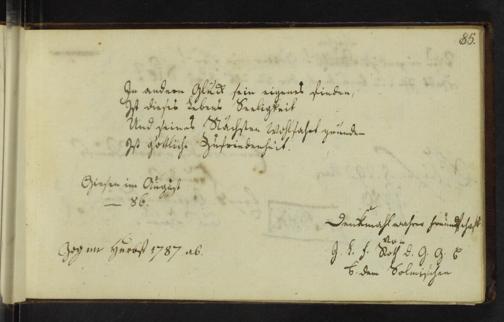 85.
In andern Glück sein eigenes finden,
Ist dieses Lebens Seeligkeit
Und seines Nächsten Wohlfahrt gründen
Ist göttliche Zufriedenheit.
Giesen im August
— 86.
Denkmahl wahrer Freundschaft
von
zog im Herbst 1787 ab.
Roth d. G. G. B
dem Solmischen